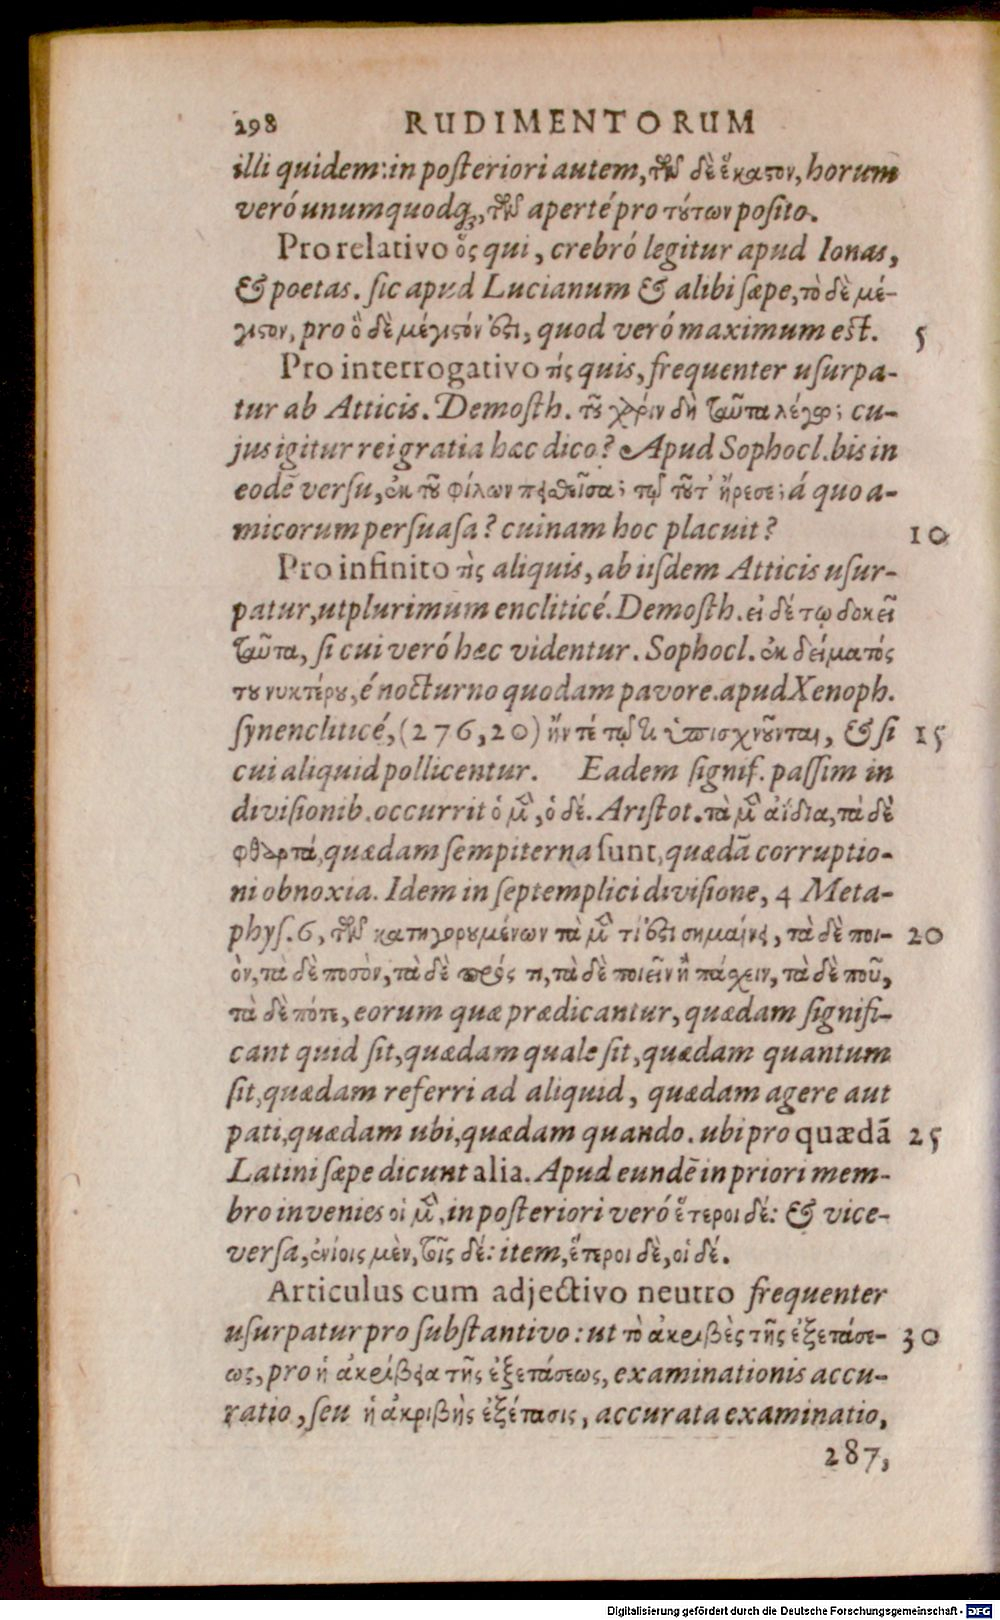 298 RUDIMENTORUM
illi quidem: in posteriori autem, τῶν δὲ ἕκαστον, horum
veró unumquodq;, τῶν aperté pro τούτων posito.
Pro relativo ὅς qui, crebró legitur apud Ionas,
& poetas. sic apud Lucianum & alibi sæpe, τὸ δὲ μέ-
γιστον, pro ὃ δὲ μέγιστόν ἐστι, quod veró maximum est. 5
Pro interrogativo τίς quis, frequenter usurpa-
tur ab Atticis. Demosth. τοῦ χάριν δὴ ταῦτα λέγω; cu-
jus igitur rei gratia hæc dico? Apud Sophocl. bis in
eodẽ versu, ἐκ τοῦ φίλων πεισθεῖσα; τῷ τοῦτ' ἤρεσε; á quo a-
micorum persuasa? cuinam hoc placuit? 10
Pro infinito τὶς aliquis, ab iisdem Atticis usur-
patur, utplurimum encliticé. Demosth. εἰ δέ τῳ δοκεῖ
ταῦτα, si cui veró hæc videntur. Sophocl. ἐκ δείματός
του νυκτέρου, é nocturno quodam pavore. apud Xenoph.
synencliticé, (276,20) ἤν τέ τῴ τι ὑπισχνοῦνται, & si 15
cui aliquid pollicentur. Eadem signif. passim in
divisionib. occurrit ὁ μὲν, ὁ δέ. Aristot. τὰ μὲν ἀΐδια, τὰ δὲ
φθαρτά, quædam sempiterna sunt, quædã corruptio-
ni obnoxia. Idem in septemplici divisione, 4 Meta-
phys. 6, τῶν κατηγορουμένων τὰ μὲν τί ἐστι σημαίνει, τὰ δὲ ποι- 20
ὸν, τὰ δὲ ποσὸν, τὰ δὲ πρός τι, τὰ δὲ ποιεῖν ἢ πάσχειν, τὰ δὲ ποῦ,
τὰ δὲ πότε, eorum quæ prædicantur, quædam signifi-
cant quid sit, quædam quale sit, quædam quantum
sit, quædam referri ad aliquid, quædam agere aut
pati, quædam ubi, quædam quando. ubi pro quædã 25
Latini sæpe dicunt alia. Apud eundẽ in priori mem-
bro invenies οἱ μὲν, in posteriori veró ἕτεροι δέ: & vice-
versa, ἐνίοις μὲν, τοῖς δέ: item, ἕτεροι δὲ, οἱ δέ.
Articulus cum adjectivo neutro frequenter
usurpatur pro substantivo: ut τὸ ἀκριβὲς τῆς ἐξετάσε- 30
ως, pro ἡ ἀκρίβεια τῆς ἐξετάσεως, examinationis accu-
ratio, seu ἡ ἀκριβὴς ἐξέτασις, accurata examinatio,
287,
Digitalisierung gefördert durch die Deutsche Forschungsgemeinschaft - DFG